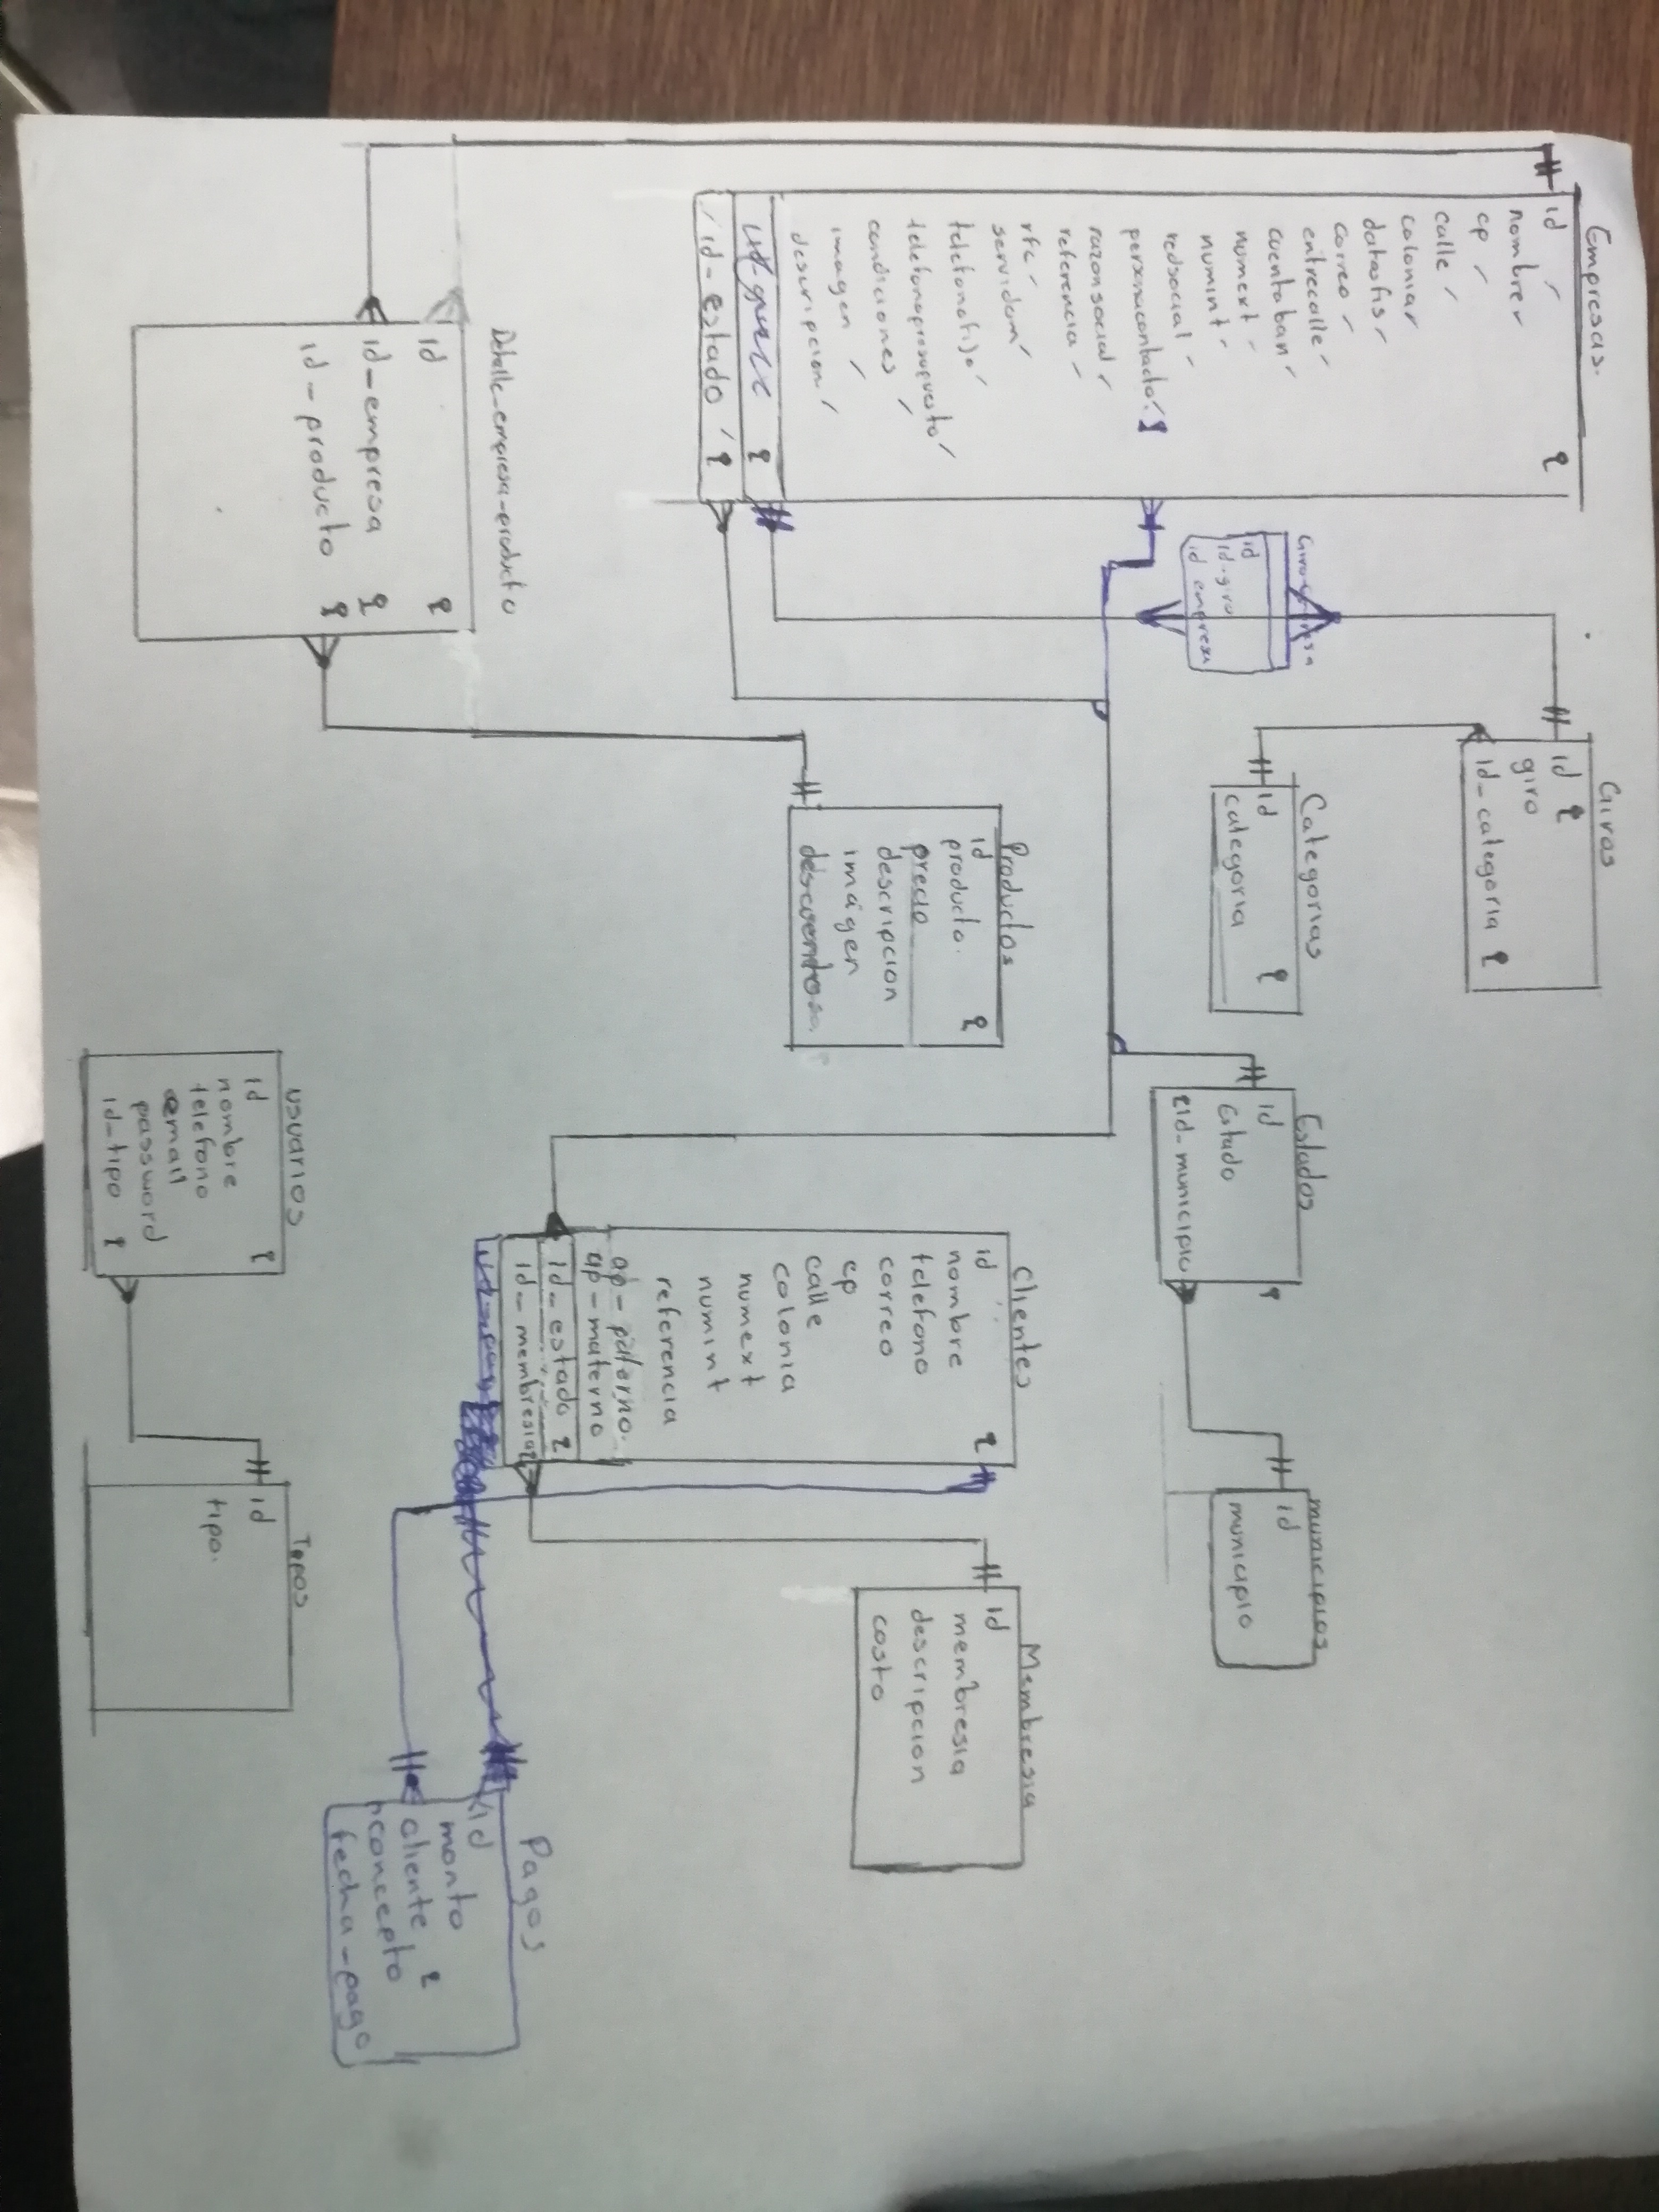 Empresas.
id
nombre
cp
calle
colonia
datosfis
correo
entrecalle
cuentaban
numext
numint
redsocial
personacontacto
razonsocial
referencia
rfc
servidom
telefonofijo
telefonopresupuesto
condiciones
imagen
descripcion
id-estado
Giros
id
giro
id-categoria
id
id-giro
id empresa
Categorias
id
categoria
Estados
id
Estado
id-municipio
municipios
id
municipio
Productos
id
producto.
precio
descripcion
imágen
descuentos
Clientes
id
nombre
telefono
correo
cp
calle
colonia
numext
numint
referencia
ap-paterno.
ap-materno
id-estado
id-membresia
Membresia
id
membresia
descripcion
costo
Detalle-empresa-producto
id
id-empresa
id-producto
Pagos
id
monto
cliente
concepto
fecha-pago
usuarios
id
nombre
telefono
email
password
id-tipo
Tipos
id
tipo.